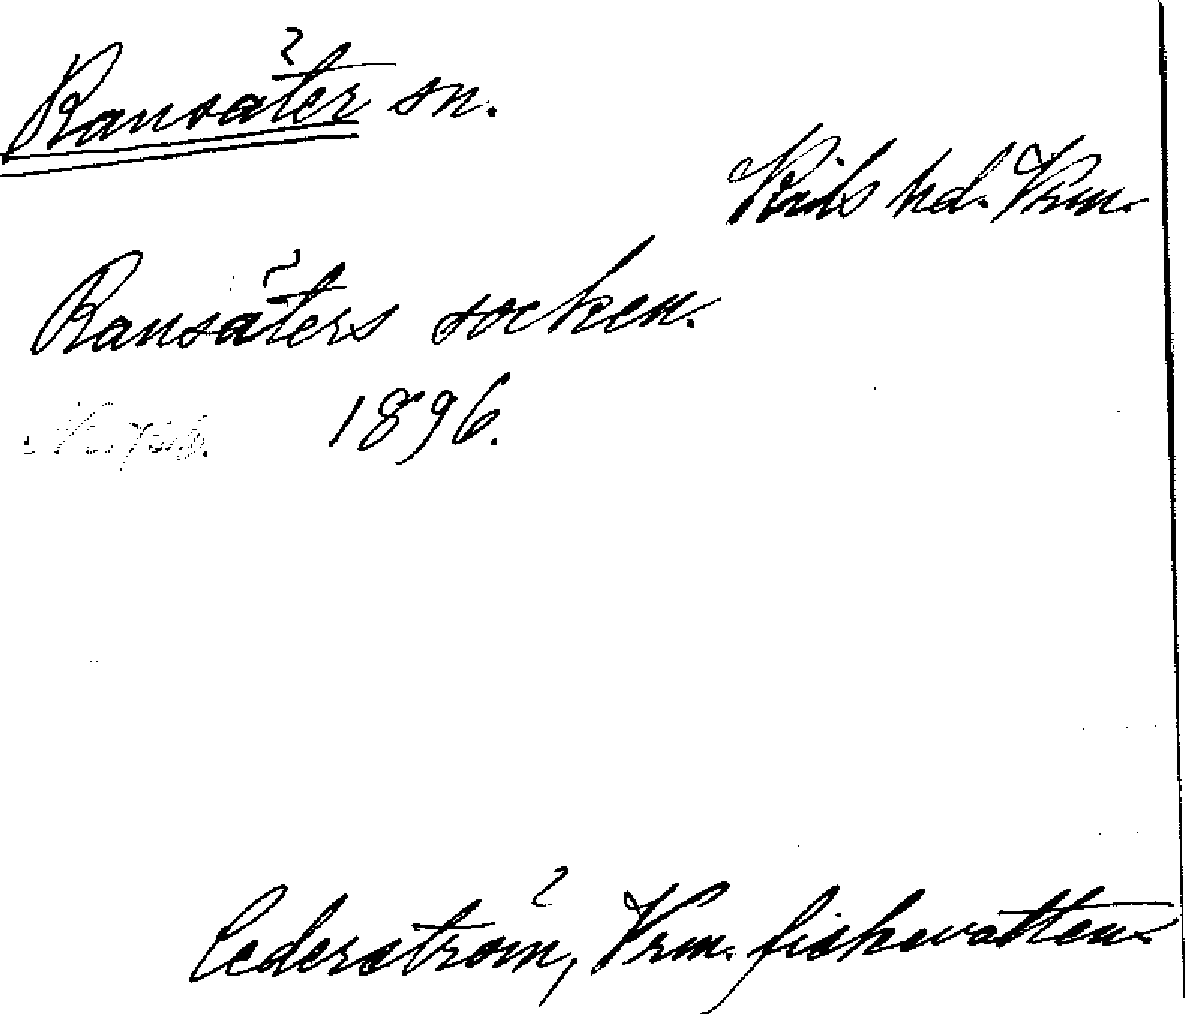 Ransäter sn.
Kils hd. Vrm.
Ransäters socken.
1896.
Cederström, Vrm. fiskevatten.